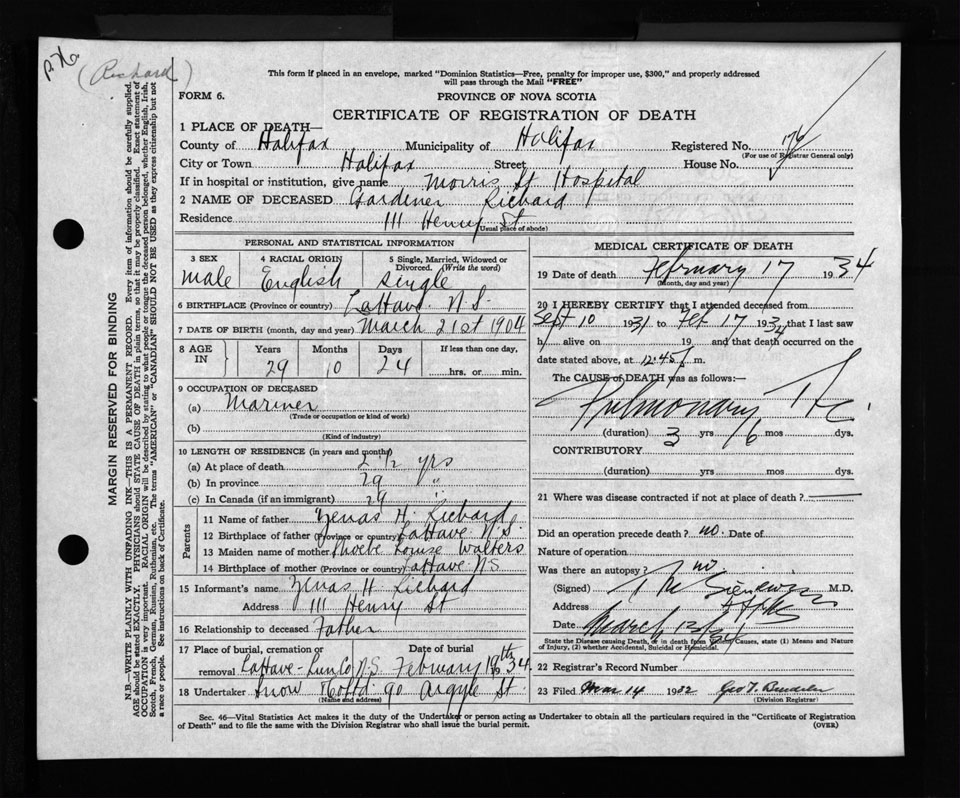 (Richard)
This form if placed in an envelope, marked "Dominion Statistics—Free, penalty for improper use, $300," and properly addressed
will pass through the Mail "FREE"
FORM 6.
PROVINCE OF NOVA SCOTIA
CERTIFICATE OF REGISTRATION OF DEATH
1 PLACE OF DEATH—
County of Halifax Municipality of Halifax Registered No. 176
(For use of Registrar General only)
City or Town Halifax Street House No.
If in hospital or institution, give name Morris St Hospital
2 NAME OF DECEASED Gardiner Richard
Residence 111 Henry St
(Usual place of abode)
PERSONAL AND STATISTICAL INFORMATION
3 SEX 4 RACIAL ORIGIN 5 Single, Married, Widowed or
Divorced. (Write the word)
male English single
6 BIRTHPLACE (Province or country) LaHave N.S.
7 DATE OF BIRTH (month, day and year) March 21st 1904
8 AGE IN Years Months Days If less than one day,
29 10 24 hrs. or min.
9 OCCUPATION OF DECEASED
(a) Mariner
(Trade or occupation or kind of work)
(b)
(Kind of industry)
10 LENGTH OF RESIDENCE (in years and months)
(a) At place of death 2½ yrs
(b) In province 29 "
(c) In Canada (if an immigrant) 29 "
Parents
11 Name of father Zenas H. Richard
12 Birthplace of father (Province or country) LaHave N.S.
13 Maiden name of mother Phoebe Louise Walters
14 Birthplace of mother (Province or country) LaHave N.S
15 Informant's name Zenas H. Richard
Address 111 Henry St
16 Relationship to deceased Father
17 Place of burial, cremation or Date of burial
removal LaHave-Lun Co N.S. February 19th 34
18 Undertaker Snow & Co Ltd 90 Argyle St.
(Name and address)
MEDICAL CERTIFICATE OF DEATH
19 Date of death February 17 1934
(Month, day and year)
20 I HEREBY CERTIFY that I attended deceased from
Sept 10 1931 to Feb 17 1934 that I last saw
h alive on 19 and that death occurred on the
date stated above, at 12.45 m.
The CAUSE of DEATH was as follows:—
Pulmonary Tbc.
(duration) 3 yrs 6 mos dys.
CONTRIBUTORY
(duration) yrs mos dys.
21 Where was disease contracted if not at place of death?
Did an operation precede death? no. Date of
Nature of operation
Was there an autopsy? no
(Signed) T M Sieniewicz M.D.
Address Hfx
Date March 13/34
State the Disease causing Death, or in death from Violent Causes, state (1) Means and Nature
of Injury, (2) whether Accidental, Suicidal or Homicidal.
22 Registrar's Record Number
23 Filed Mar 14 1932
(Division Registrar)
Sec. 46—Vital Statistics Act makes it the duty of the Undertaker or person acting as Undertaker to obtain all the particulars required in the "Certificate of Registration
of Death" and to file the same with the Division Registrar who shall issue the burial permit.
(OVER)
MARGIN RESERVED FOR BINDING
N.B.—WRITE PLAINLY WITH UNFADING INK—THIS IS A PERMANENT RECORD. Every item of information should be carefully supplied.
AGE should be stated EXACTLY. PHYSICIANS should STATE CAUSE OF DEATH in plain terms, so that it may be properly classified. Exact statement of
OCCUPATION is very important. RACIAL ORIGIN will be described by stating to what people or tongue the deceased person belonged, whether English, Irish,
Scotch, French, German, Russian, Ruthenian, etc. The terms "AMERICAN" or "CANADIAN" SHOULD NOT BE USED as they express citizenship but not
a race or people. See instructions on back of Certificate.